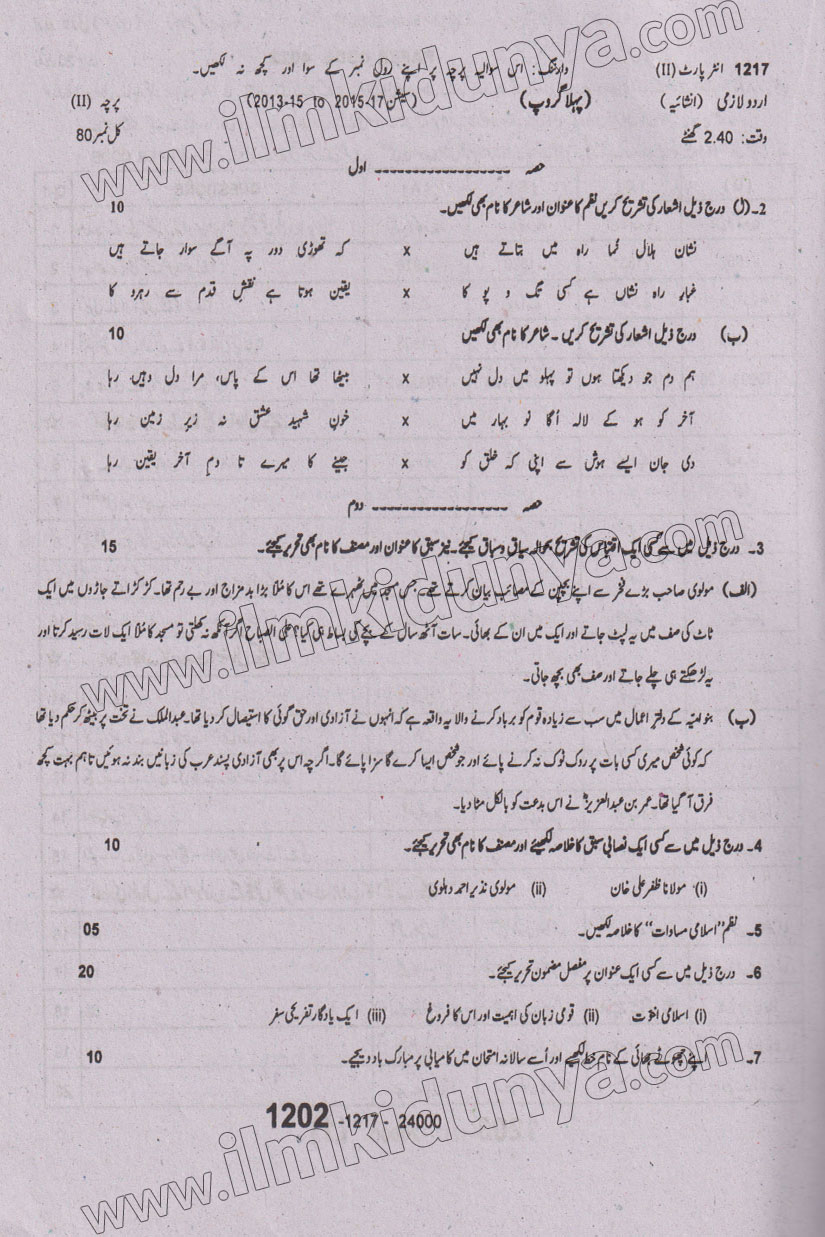 1217 انٹر پارٹ (II) وارننگ: اس سوالیہ پرچہ پر اپنے رول نمبر کے سوا اور کچھ نہ لکھیں۔
اردو لازمی (انشائیہ) (پہلا گروپ) (سیشن 17-2015 to 15-2013) پرچہ (II)
وقت: 2.40 گھنٹے کل نمبر 80
حصہ ------------------ اول
2۔ (ل) درج ذیل اشعار کی تشریح کریں نظم کا عنوان اور شاعر کا نام بھی لکھیں۔ 10
نشان ہلال نما راہ میں بتاتے ہیں x کہ تھوڑی دور پہ آگے سوار جاتے ہیں
غبار راہ نشاں ہے کسی تگ و پو کا x یقین ہوتا ہے نقشِ قدم سے رہرو کا
(ب) درج ذیل اشعار کی تشریح کریں ۔ شاعر کا نام بھی لکھیں 10
ہم دم جو دیکھتا ہوں تو پہلو میں دل نہیں x بیٹھا تھا اس کے پاس، مرا دل وہیں رہا
آخر کو ہو کے لالہ اُگا نو بہار میں x خونِ شہید عشق نہ زیرِ زمین رہا
دی جان ایسے ہوش سے اپنی کہ خلق کو x جینے کا میرے تا دمِ آخر یقین رہا
حصہ ------------------ دوم
3۔ درج ذیل میں سے کسی ایک اقتباس کی تشریح بحوالہ سیاق و سباق کیجئے۔ نیز سبق کا عنوان اور مصنف کا نام بھی تحریر کیجئے۔ 15
(الف) مولوی صاحب بڑے فخر سے اپنے بچپن کے مصائب بیان کرتے تھے۔ جس مسجد میں ٹھہرے تھے اس کا مُلا بڑا بد مزاج اور بے رحم تھا۔ کڑکڑاتے جاڑوں میں ایک
ٹاٹ کی صف میں یہ لپٹ جاتے اور ایک میں ان کے بھائی۔ سات آٹھ سال کے بچے کی بساط ہی کیا؟ علی الصباح اگر آنکھ نہ کھلتی تو مسجد کا مُلا ایک لات رسید کرتا اور
یہ لڑھکتے ہی چلے جاتے اور صف بھی بچھ جاتی۔
(ب) بنو امیّہ کے دفترِ اعمال میں سب سے زیادہ قوم کو برباد کرنے والا یہ واقعہ ہے کہ انہوں نے آزادی اور حق گوئی کا استیصال کر دیا تھا۔ عبدالملک نے تخت پر بیٹھ کر حکم دیا تھا
کہ کوئی شخص میری کسی بات پر روک ٹوک نہ کرنے پائے اور جو شخص ایسا کرے گا سزا پائے گا۔ اگرچہ اس پر بھی آزادی پسند عرب کی زبانیں بند نہ ہوئیں تاہم بہت کچھ
فرق آ گیا تھا۔ عمر بن عبدالعزیزؒ نے اس بدعت کو بالکل مٹا دیا۔
4۔ درج ذیل میں سے کسی ایک نصابی سبق کا خلاصہ لکھیئے اور مصنف کا نام بھی تحریر کیجئے۔ 10
(i) مولانا ظفر علی خان (ii) مولوی نذیر احمد دہلوی
5۔ نظم "اسلامی مساوات" کا خلاصہ لکھیں۔ 05
6۔ درج ذیل میں سے کسی ایک عنوان پر مفصل مضمون تحریر کیجئے۔ 20
(i) اسلامی اخوّت (ii) قومی زبان کی اہمیت اور اس کا فروغ (iii) ایک یادگار تفریحی سفر
7۔ اپنے چھوٹے بھائی کے نام خط لکھیے اور اُسے سالانہ امتحان میں کامیابی پر مبارک باد دیجیے۔ 10
1202 -1217 - 24000
www.ilmkidunya.com
www.ilmkidunya.com
www.ilmkidunya.com